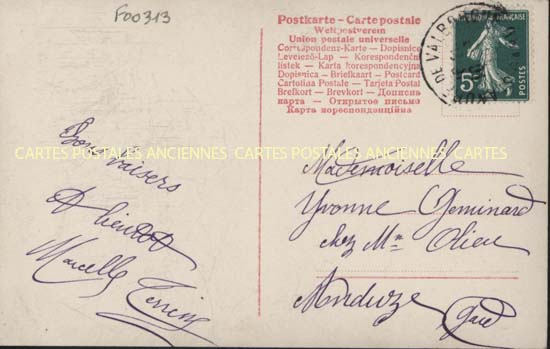 F00313
Postkarte - Carte postale
Weltpostverein
Union postale universelle
Correspondenz-Karte - Dopisnice
Levelező-Lap - Korespondenční
lístek - Karta korespondencyjna
Dopisnica - Briefkaart - Postcard
Cartolina Postale - Tarjeta Postal
Brefkort - Brevkort - Дописна
карта - Открытое письмо
Карта кореспонденційна
DE VALBORGNE
FRANÇAISE
5c
POSTES
CARTES POSTALES ANCIENNES CARTES POSTALES ANCIENNES CARTES POSTALES ANCIENNES
Bons baisers
A bientôt
Marcelle
Mademoiselle
Yvonne Geminard
chez Mr
Anduze
Gard